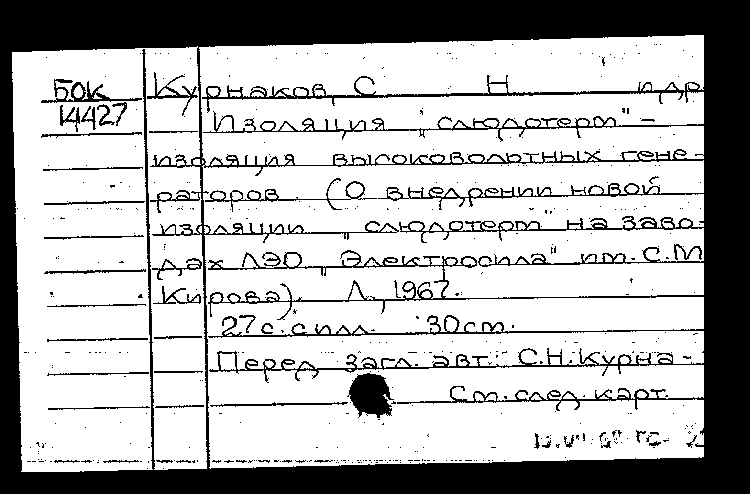 БОК Курнаков, С Н и др
14427 Изоляция "слюдотерм" -
изоляция высоковольтных гене-
раторов. (О внедрении новой
изоляции "слюдотерм" на заво-
дах ЛЭО "Электросила" им. С.М
Кирова). Л., 1967.
27 с. с илл. 30 см.
Перед загл. авт.: С.Н. Курна-
См. след. карт.